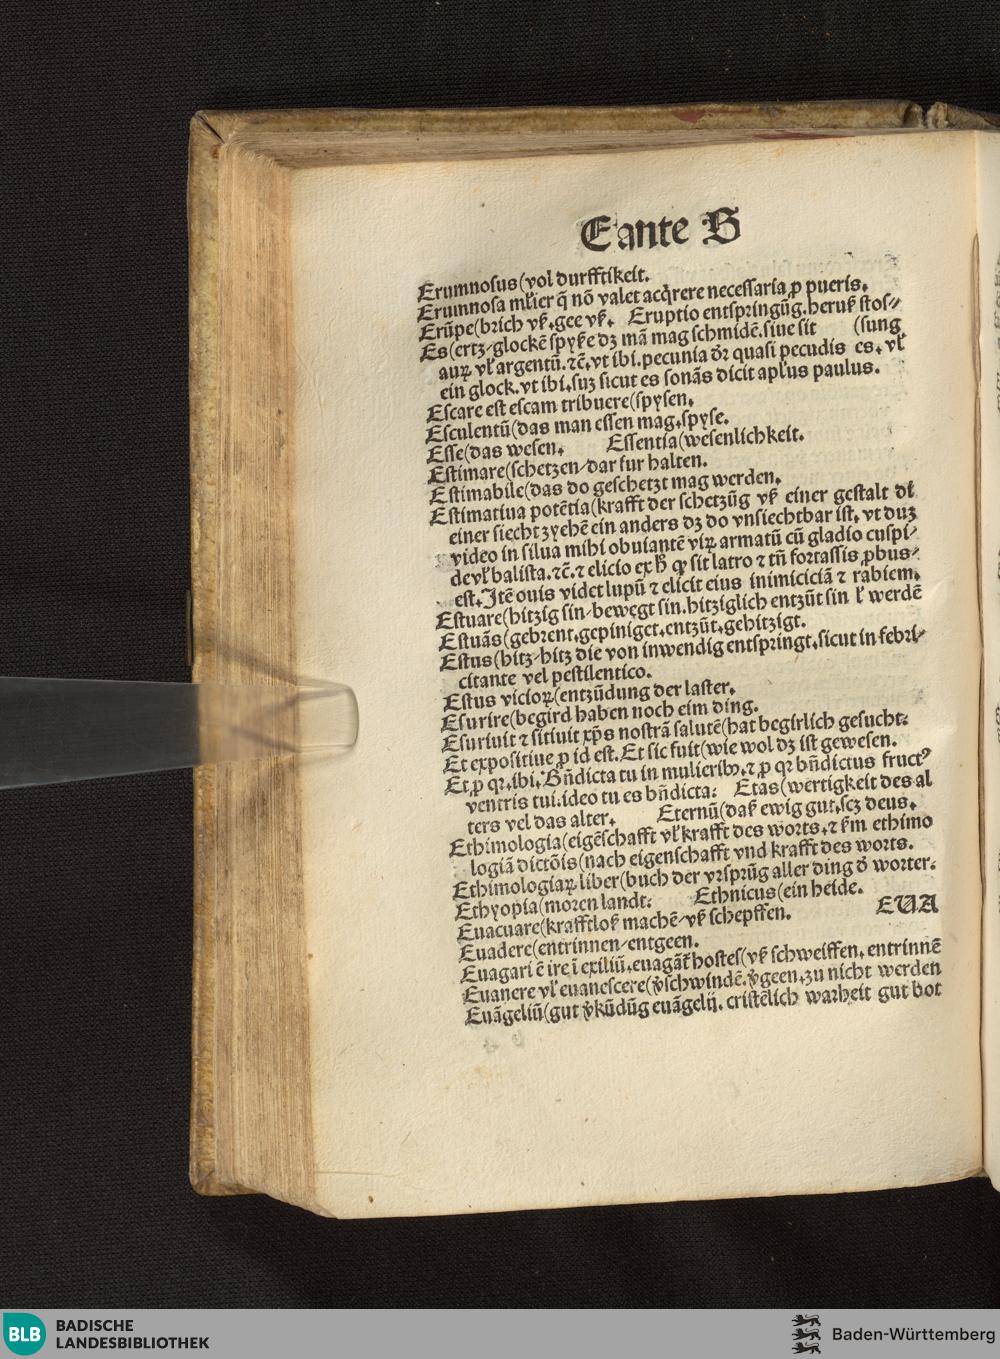 E ante S
Erumnosus(vol durfftikeit.
Erumnosa mĺier q̄ nō valet acq̇rere necessaria ꝓ pueris.
Erūpe(brich vß.gee vß. Eruptio entspringūg.heruß stos⸗
Es(ertz/glockē spyße dz mā mag schmidē.siue sit (sung
auꝝ vĺ argentū.ꝛc̄.vt ibi.pecunia dr̄ quasi pecudis es. vĺ
ein glock.vt ibi.suꝫ sicut es sonās dicit apĺus paulus.
Escare est escam tribuere(spysen.
Esculentū(das man essen mag.spyse.
Esse(das wesen. Essentia(wesenlichkeit.
Estimare(schetzen/dar fur halten.
Estimabile(das do geschetzt mag werden.
Estimatiua potētia(krafft der schetzūg vß einer gestalt dĺ
einer siecht zyehē ein anders dz do vnsiechtbar ist. vt duꝫ
video in silua mihi obuiantē viꝝ armatū cū gladio cuspi⸗
de vĺ balista.ꝛc̄.⁊ elicio ex h̄ ꝙ sit latro ⁊ tn̄ fortassis ꝓbus⸗
est.Itē ouis videt lupū ⁊ elicit eius inimiciciā ⁊ rabiem.
Estuare(hitzig sin/bewegt sin.hitziglich entzūt sin ĺ werdē
Estuās(gebrent.gepiniget.entzūt.gehitzigt.
Estus(hitz/hitz die von inwendig entspringt.sicut in febri⸗
citante vel pestilentico.
Estus vicioꝝ(entzūdung der laster.
Esurire(begird haben noch eim ding.
Esuriuit ⁊ sitiuit xp̄s nostrā salutē(hat begirlich gesucht:
Et expositiue ꝓ id est.Et sic fuit(wie wol dz ist gewesen.
Et ꝓ qꝛ.ibi.Bn̄dicta tu in mulieribꝰ.⁊ ꝓ qꝛ bn̄dictus fructꝰ
ventris tui.ideo tu es bn̄dicta: Etas(wertigkeit des al
ters vel das alter. Eternū(daß ewig gut.scꝫ deus.
Ethimologia(eigēschafft vĺ krafft des worts.⁊ ßm ethimo
logiā dictōis(nach eigenschafft vnd krafft des worts.
Ethimologiaꝝ liber(buch der vrsprūg aller ding ō worter:
Ethyopia(moren landt: Ethnicus(ein heide.
Euacuare(krafftloß machē/vß schepffen. EUA
Euadere(entrinnen/entgeen.
Euagari ē ire ī exiliū.euagāt̄ hostes(vß schweiffen.entrinnē
Euanere vĺ euanescere(v̄schwindē.v̄geen.zu nicht werden
Euāgeliū(gut v̄kūdūg euāgelij. cristēlich warheit gut bot
BLB
BADISCHE
LANDESBIBLIOTHEK
Baden-Württemberg